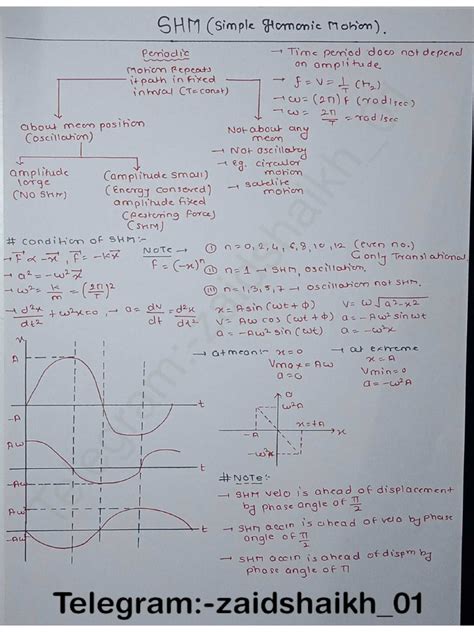 SHM (Simple Harmonic Motion).
Periodic
Motion Repeats
it path in fixed
interval (T=const)
→ Time period does not depend
on amplitude.
→ f = ν = 1/T (Hz)
→ ω = (2π) f (rad/sec)
→ ω = 2π/T = rad/sec
about mean position
(oscillation)
Not about any
mean
→ Not oscillatory
→ eg. circular
motion
→ satelite
motion
amplitude
large
(NO SHM)
(amplitude small)
(Energy conserved)
amplitude fixed
(Restoring force)
(SHM)
# condition of SHM:-
→ F ∝ -x, F = -kx
→ a² = -ω²x
→ ω² = k/m = (2π/T)²
→ d²x/dt² + ω²x = 0, → a = dv/dt = d²x/dt²
NOTE →
f = (-x)ⁿ
(i) n = 0, 2, 4, 6, 8, 10, 12 (even no.)
only Translational
(ii) n = 1 → SHM, oscillation.
(iii) n = 1, 3, 5, 7 → oscillation not SHM.
x = A sin (ωt + φ) v = ω √(a²-x²)
v = Aω cos (ωt + φ) a = -Aω² sin ωt
a = -Aω² sin (ωt) a = -ω²x
→ at mean :- x = 0
Vmax = Aω
a = 0
→ at extreme
x = A
Vmin = 0
a = -ω²A
x
A
-A
t
Aω
-Aω
t
Aω
-Aω
t
a
ω²A
-A
x=+A
x
-ω²x
# NOTE:-
→ SHM velo is ahead of displacement
by phase angle of π/2
→ SHM accln is ahead of velo by phase
angle of π/2
→ SHM accln is ahead of dispm by
phase angle of π
Telegram:-zaidshaikh_01
Telegram:-zaidshaikh_01